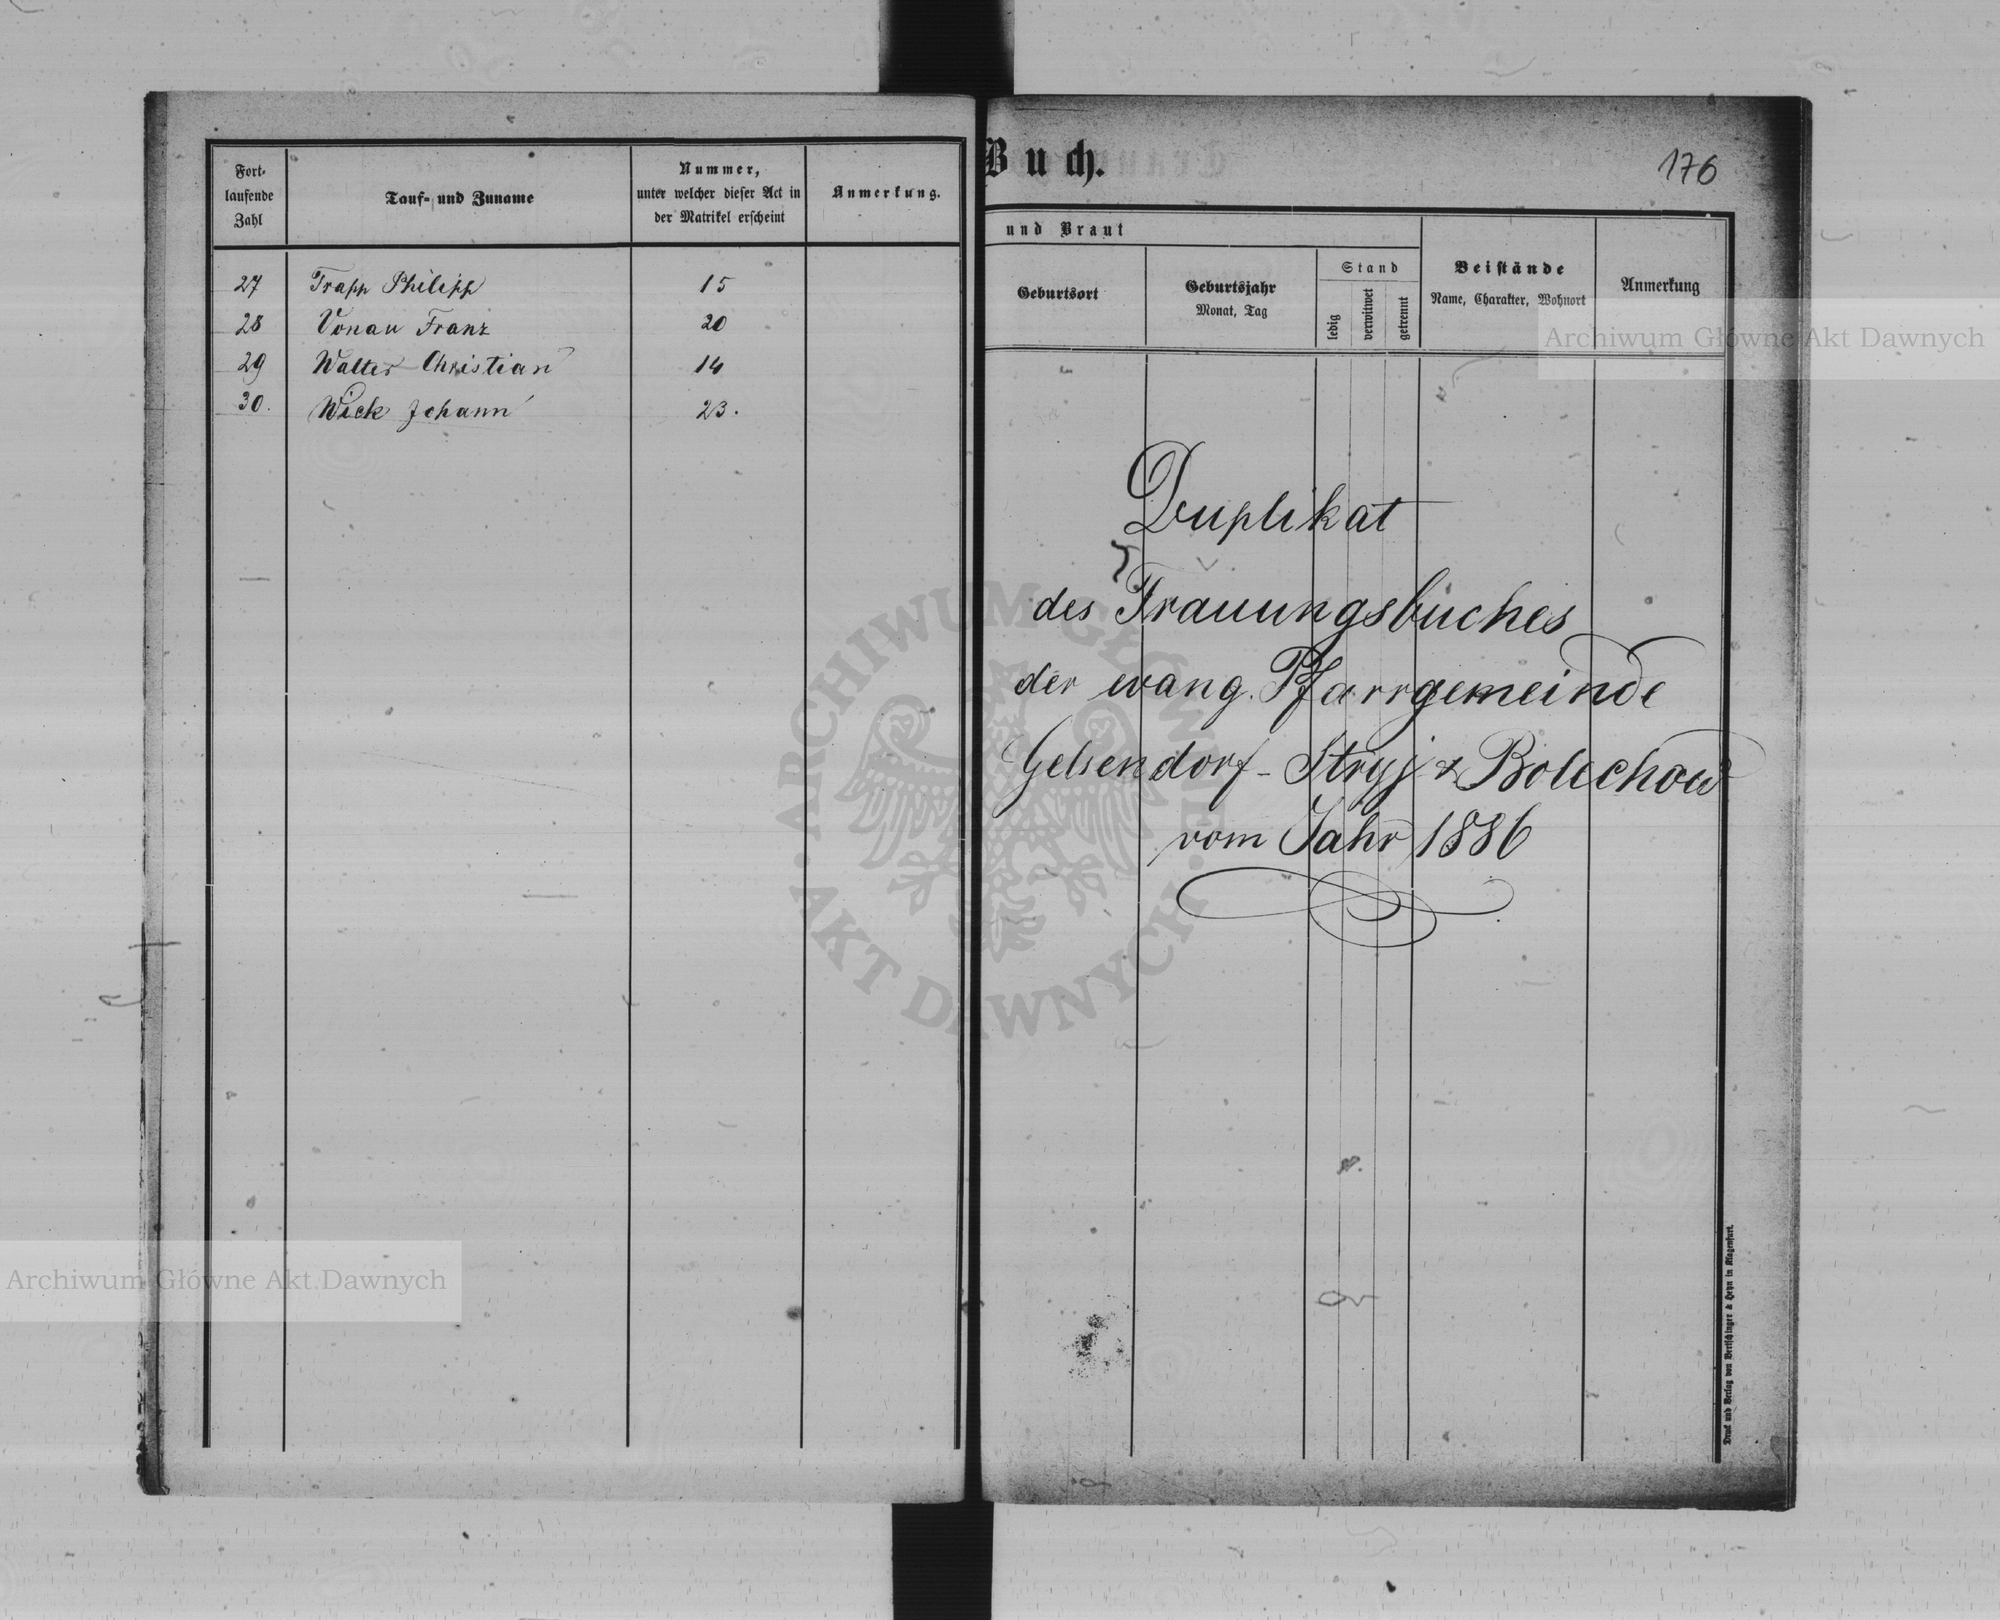 Fort-
laufende
Zahl
Tauf- und Zuname
Nummer,
unter welcher dieser Act in
der Matrikel erscheint
Anmerkung.
27 Trapp Philipp 15
28 Vonau Franz 20
29 Walter Christian 14
30. Wick Johann 23.
Buch.
176
und Braut
Geburtsort
Geburtsjahr
Monat, Tag
Stand
ledig
verwitwet
getrennt
Beistände
Name, Charakter, Wohnort
Anmerkung
Duplikat
des Trauungsbuches
der evang. Pfarrgemeinde
Gelsendorf - Stryj & Bolechow
vom Jahr 1886
Druck und Verlag von Bertschinger & Heyn in Klagenfurt.
Archiwum Główne Akt Dawnych
Archiwum Główne Akt Dawnych
ARCHIWUM GŁÓWNE
AKT DAWNYCH